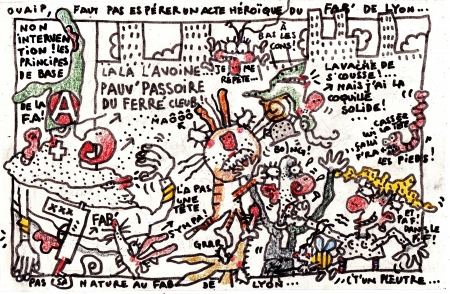 OUAIP, FAUT PAS ESPÉRER UN ACTE HÉROÏQUE DU FAB' DE LYON...
NON
INTERVEN
TION! LES
PRINCIPES
DE BASE
DE LA
FA!
A
LALÀ L'AVOINE...
PAUV' PASSOIRE
DU FERRÉ CLEUB
À
BAS LES
CONS!
JE ME
RÉPÈTE
LA VACHE DE
S'COUSSE!...
MAIS J'AI LA
COQUILLE
SOLIDE!
CASSE
LES PIEDS!
BOJING!
LA PAS
UNE
TÊTE
SYMPA!
XXX
FAB'
GRRR
ET
PAF
DANS LE
PIF!
PAS NATURE AU FAB DE LYON...
C'T'UN PLEUTRE...